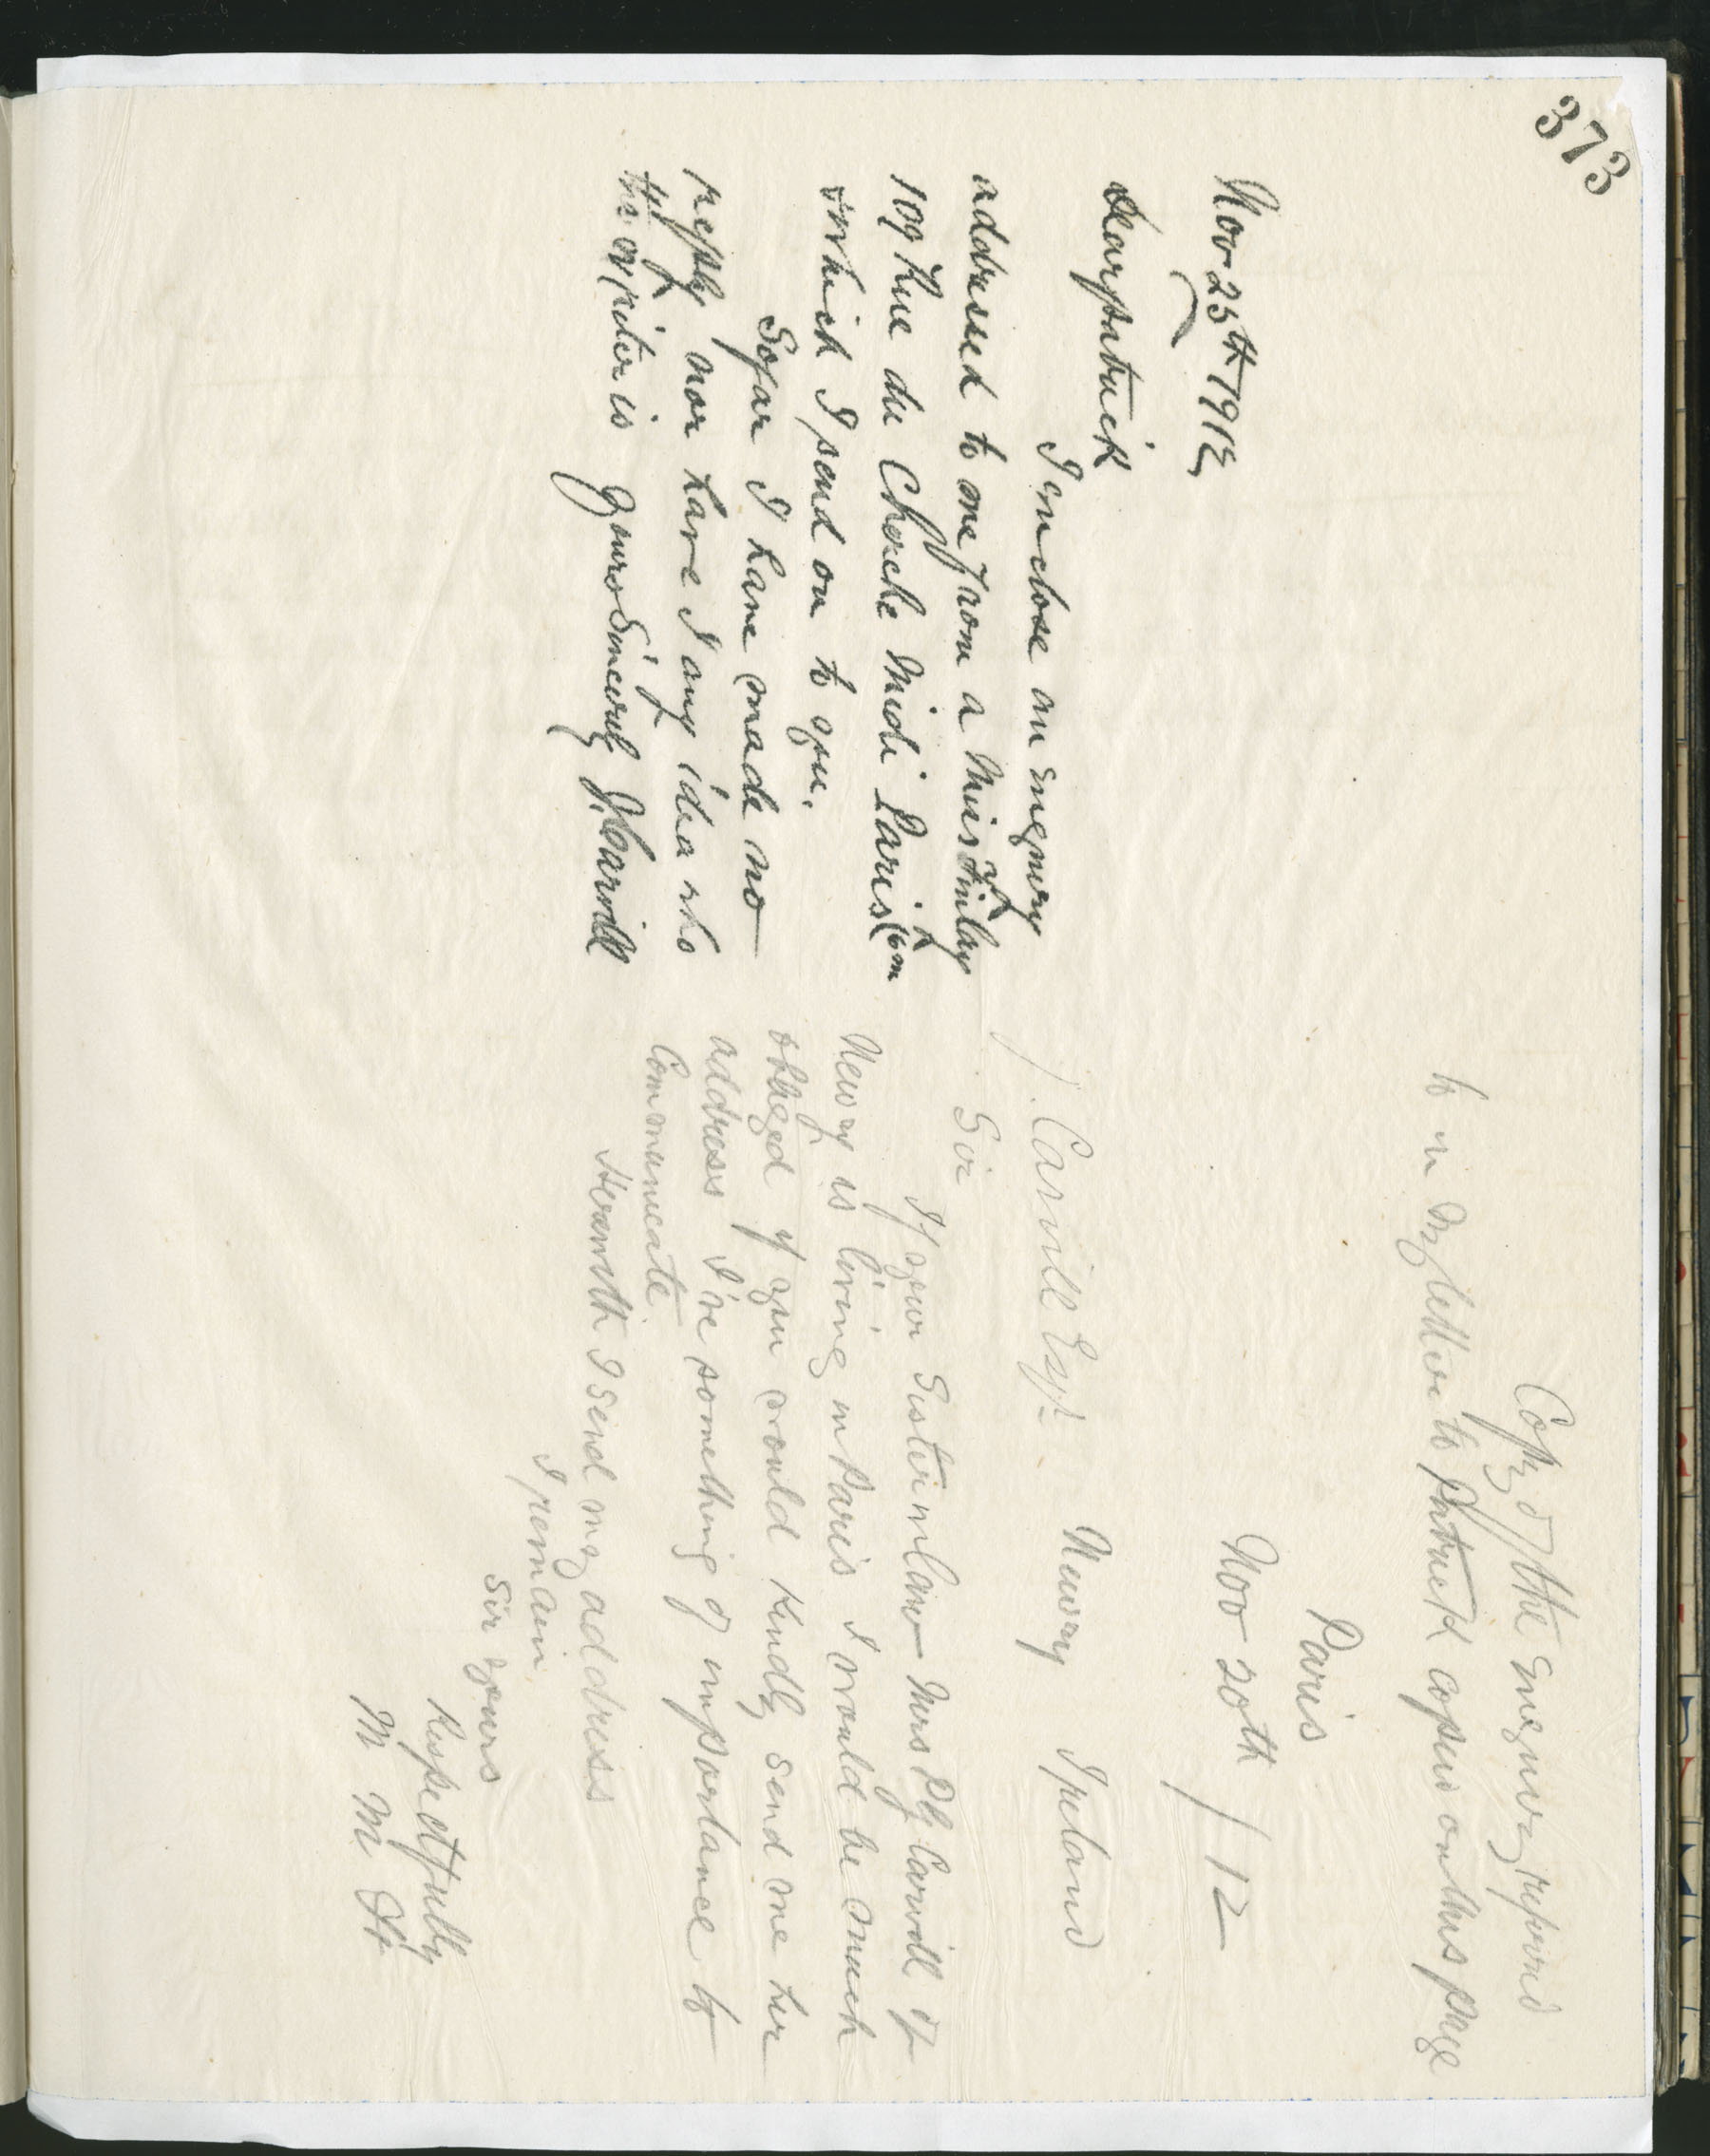 373
Nov 25th 1912
Dear Patrick
I inclose an enquiry
addressed to me from a Miss Finlay
109 Rue du Cherche Midi Paris (6m
which I send on to you.
So far I have made no
reply nor have I any idea who
the writer is Yours Sincerely J. Carvill
Copy of the enquiry referred
to in my letter to Patrick copied on this page
Paris
Nov 20th / 12
J. Carvill Esqr Newry Ireland
Sir
If your Sister in Law Mrs P G Carvill of
Newry is living in Paris I would be much
obliged if you would Kindly send me her
address I've something of importance to
Communicate.
Herewith I send my address
I remain
Sir yours
Respectfully
M M